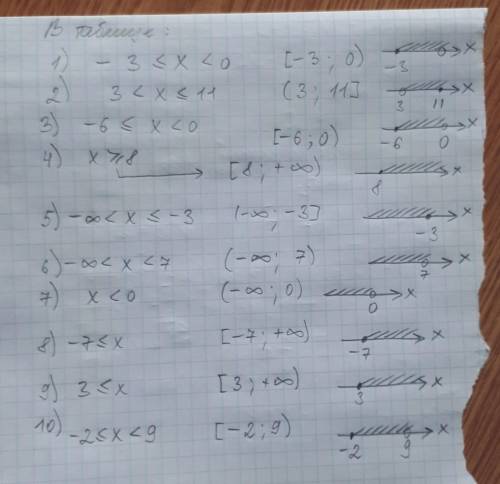 В таблице:
1) -3 ≤ x < 0 [-3; 0) -3 x
2) 3 < x ≤ 11 (3; 11] 3 11 x
3) -6 ≤ x < 0 [-6; 0) -6 0 x
4) x ≥ 8 [8; +∞) 8 x
5) -∞ < x ≤ -3 (-∞; -3] -3 x
6) -∞ < x < 7 (-∞; 7) 7 x
7) x < 0 (-∞; 0) 0 x
8) -7 ≤ x [-7; +∞) -7 x
9) 3 ≤ x [3; +∞) 3 x
10) -2 ≤ x < 9 [-2; 9) -2 9 x